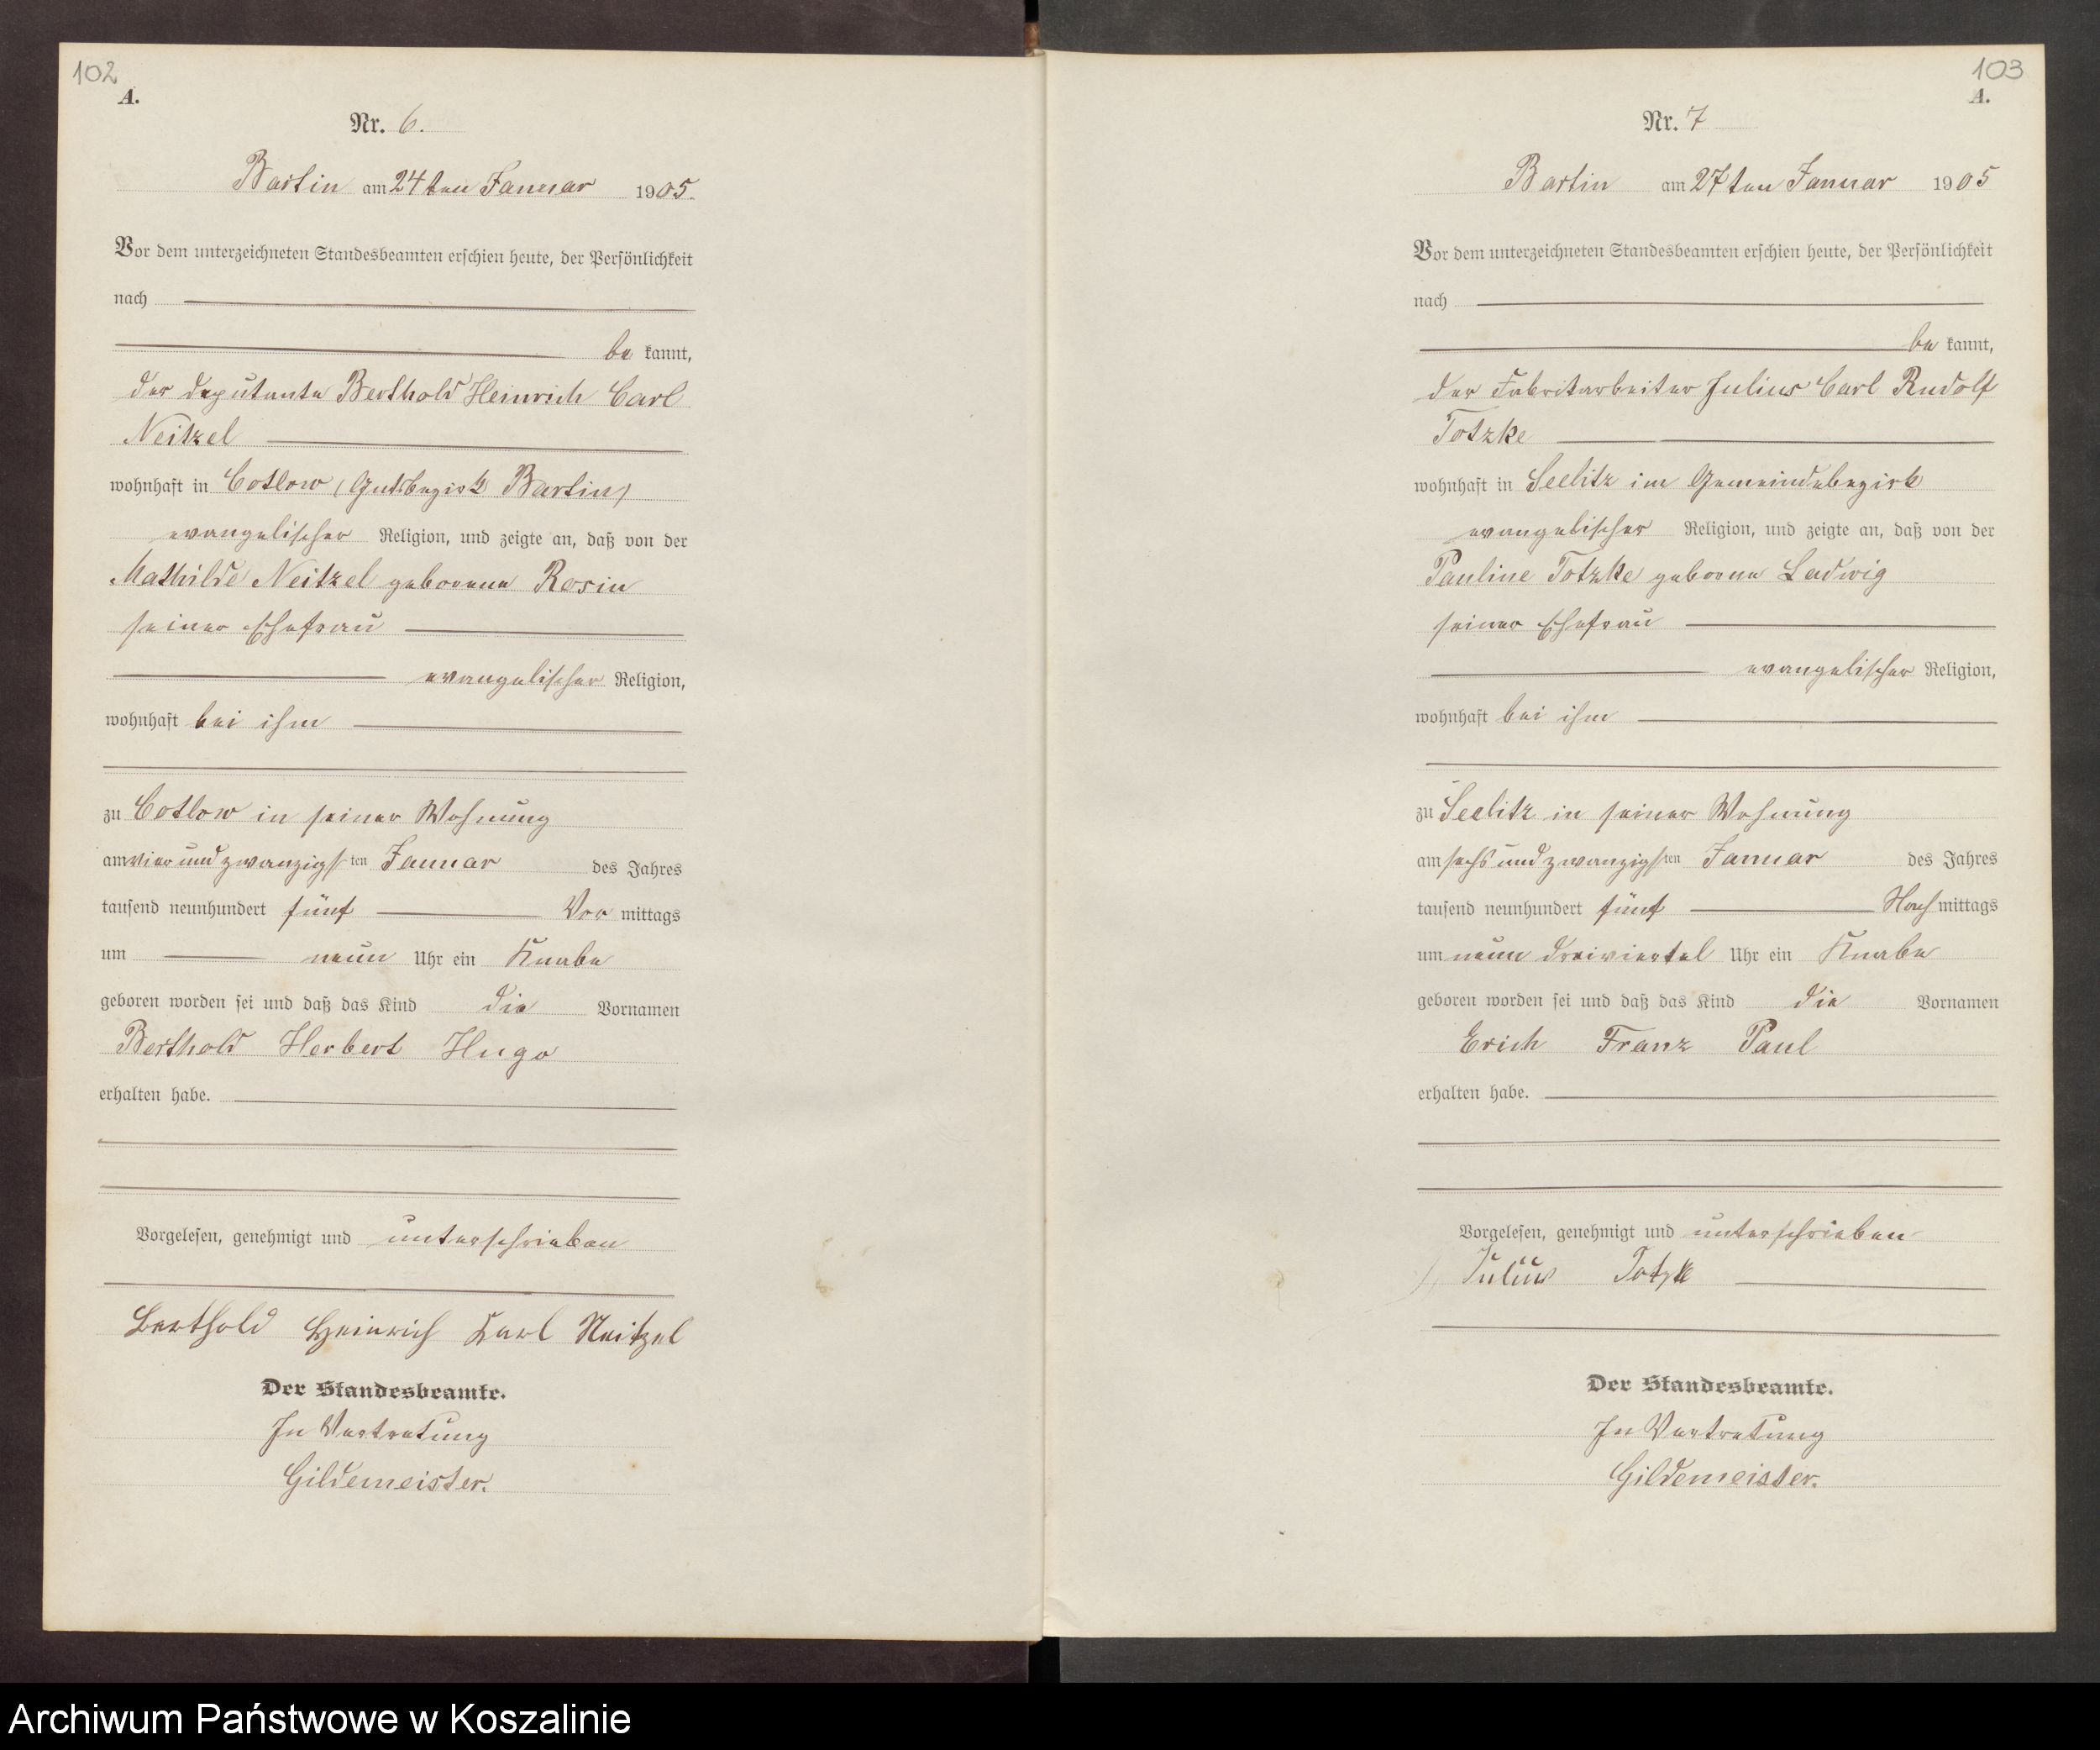 102
A.
Nr. 6.
Bartin am 24ten Januar 1905.
Vor dem unterzeichneten Standesbeamten erschien heute, der Persönlichkeit
nach
be kannt,
der Deputante Berthold Heinrich Carl
Neitzel
wohnhaft in Cotlow (Gutsbezirk Bartin)
evangelischer Religion, und zeigte an, daß von der
Mathilde Neitzel geborene Rosin
seiner Ehefrau
evangelischer Religion,
wohnhaft bei ihm
zu Cotlow in seiner Wohnung
am vier und zwanzigsten Januar des Jahres
tausend neunhundert fünf Vor mittags
um neun Uhr ein Knabe
geboren worden sei und daß das Kind die Vornamen
Berthold Herbert Hugo
erhalten habe.
Vorgelesen, genehmigt und unterschrieben
Berthold Heinrich Karl Neitzel
Der Standesbeamte.
In Vertretung
Gildemeister.
103
A.
Nr. 7
Bartin am 27ten Januar 1905
Vor dem unterzeichneten Standesbeamten erschien heute, der Persönlichkeit
nach
be kannt,
der Fabrikarbeiter Julius Carl Rudolf
Totzke
wohnhaft in Seelitz im Gemeindebezirk
evangelischer Religion, und zeigte an, daß von der
Pauline Totzke geborne Ladwig
seiner Ehefrau
evangelischer Religion,
wohnhaft bei ihm
zu Seelitz in seiner Wohnung
am sechs und zwanzigsten Januar des Jahres
tausend neunhundert fünf Nach mittags
um neun dreiviertel Uhr ein Knabe
geboren worden sei und daß das Kind die Vornamen
Erich Franz Paul
erhalten habe.
Vorgelesen, genehmigt und unterschrieben
Julius Totzke
Der Standesbeamte.
In Vertretung
Gildemeister.
Archiwum Państwowe w Koszalinie